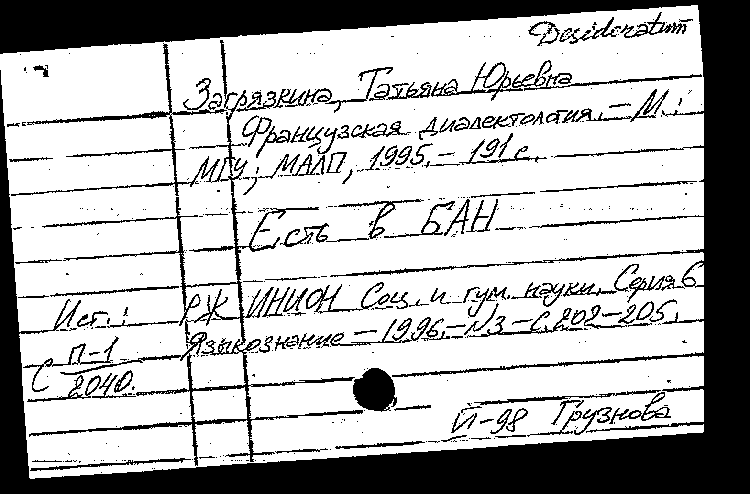 Desideratum
Загрязкина, Татьяна Юрьевна
Французская диалектология. – М.:
МГУ; МАЛП, 1995. – 191 с.
Есть в БАН
Ист.: РЖ ИНИОН Соц. и гум. науки. Серия 6
Языкознание – 1996. – №3 – С. 202–205.
С П-1
2040.
Й-98 Грузнова